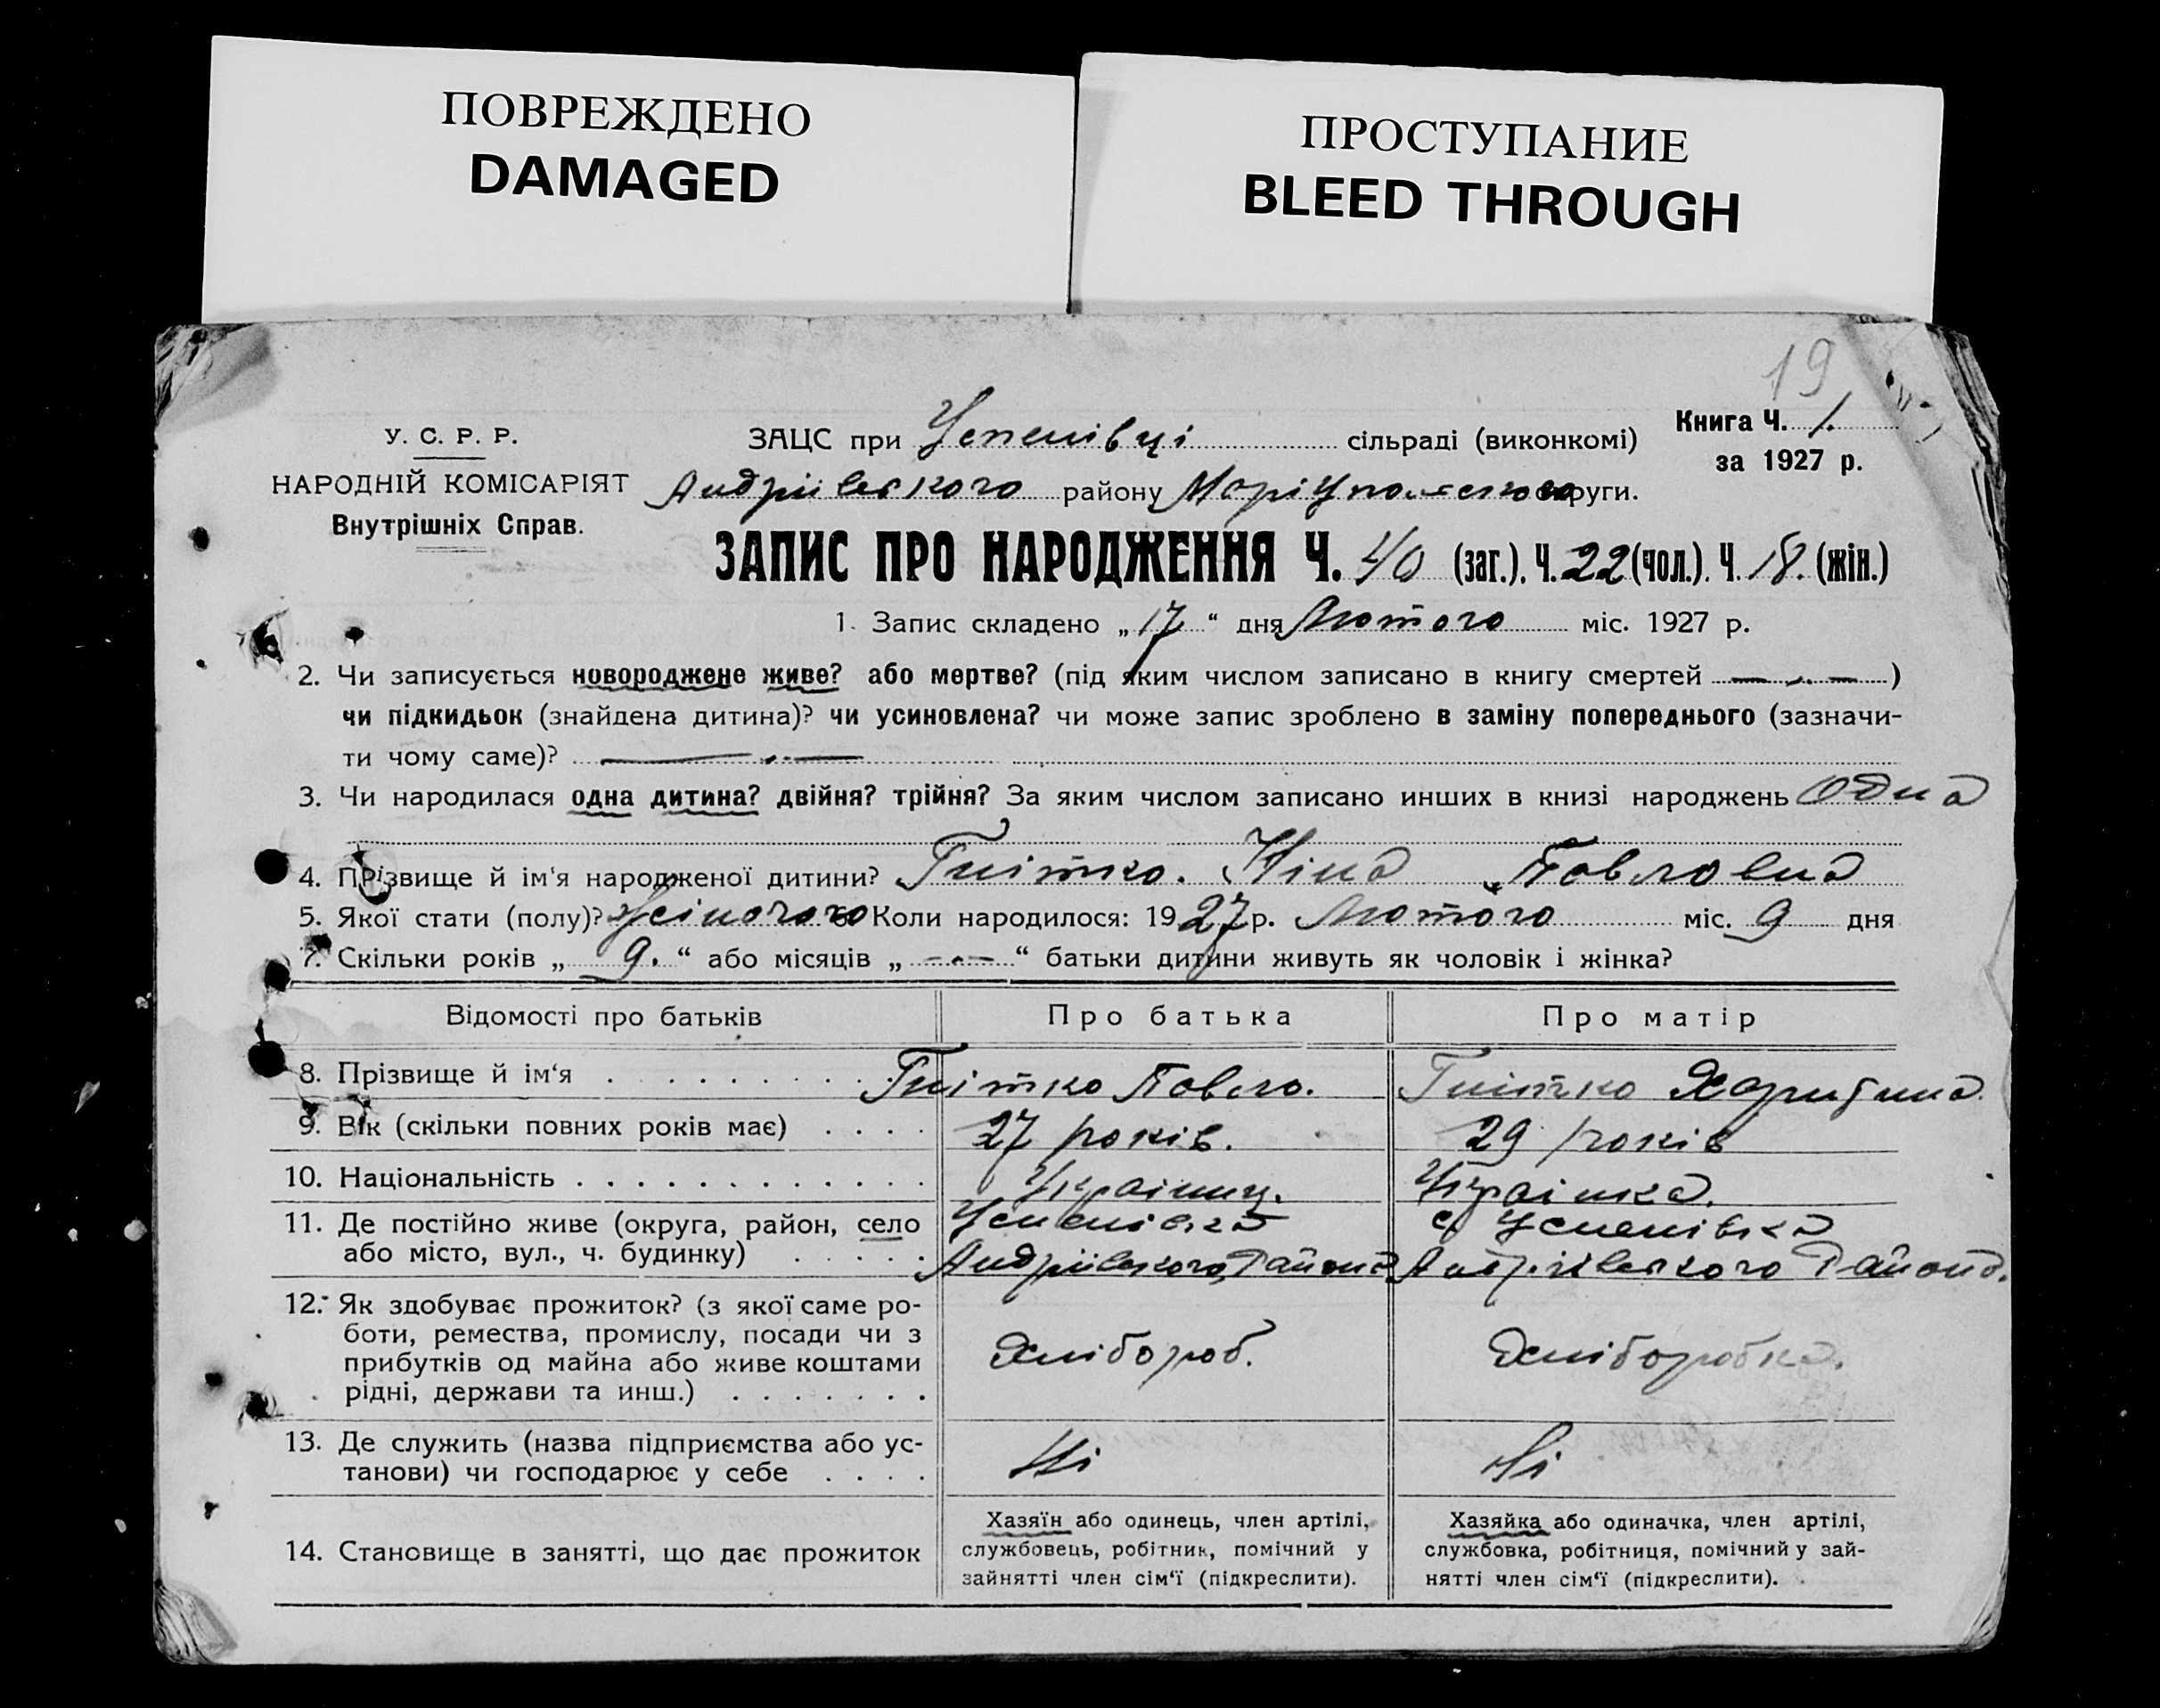 ПОВРЕЖДЕНО
DAMAGED
ПРОСТУПАНИЕ
BLEED THROUGH
19
У. С. Р. Р.
НАРОДНІЙ КОМІСАРІЯТ
Внутрішніх Справ.
ЗАЦС при Успенівці сільраді (виконкомі)
Книга Ч. 1.
за 1927 р.
Андріївського району Маріупольського округи.
ЗАПИС ПРО НАРОДЖЕННЯ Ч. 40 (заг.). Ч. 22 (чол.). Ч. 18. (жін.)
1. Запис складено „17“ дня Лютого міс. 1927 р.
2. Чи записується новороджене живе? або мертве? (під яким числом записано в книгу смертей — )
чи підкидьок (знайдена дитина)? чи усиновлена? чи може запис зроблено в заміну попереднього (зазначи-
ти чому саме)? —
3. Чи народилася одна дитина? двійня? трійня? За яким числом записано инших в книзі народжень Одна
4. Прізвище й ім'я народженої дитини? Гнітко. Ніна Павловна
5. Якої стати (полу)? Жіночого Коли народилося: 1927 р. Лютого міс. 9 дня
7. Скільки років „ 9. “ або місяців „ — “ батьки дитини живуть як чоловік і жінка?
Відомості про батьків
Про батька
Про матір
8. Прізвище й ім‘я . . . . . . . . .
Гнітко Павло.
Гнітко Харитина
9. Вік (скільки повних років має) . . . .
27 років.
29 років
10. Національність . . . . . . . . . . . . .
Українец.
Українка.
11. Де постійно живе (округа, район, село
або місто, вул., ч. будинку) . . . . .
Успенівка
Андріївського Району
с. Успенівка
Андріївського Району.
12. Як здобуває прожиток? (з якої саме ро-
боти, ремества, промислу, посади чи з
прибутків од майна або живе коштами
рідні, держави та инш.) . . . . . . .
Хлібороб.
Хліборобка.
13. Де служить (назва підприємства або ус-
танови) чи господарює у себе . . . .
Ні
Ні
14. Становище в занятті, що дає прожиток
Хазяїн або одинець, член артілі,
службовець, робітник, помічний у
зайнятті член сім‘ї (підкреслити).
Хазяйка або одиначка, член артілі,
службовка, робітниця, помічний у зай-
нятті член сім‘ї (підкреслити).